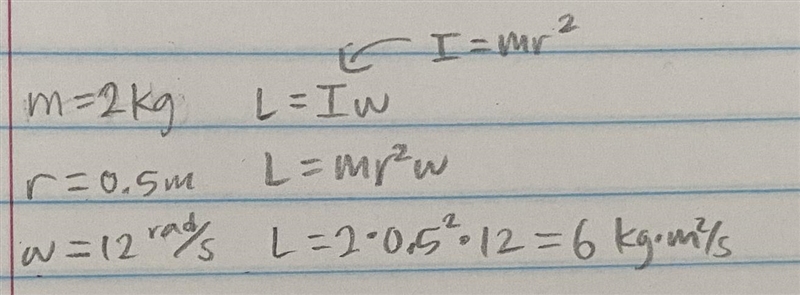 I = mr²
m = 2 kg L = Iw
r = 0.5m L = mr²w
w = 12 rad/s L = 2 · 0.5² · 12 = 6 kg·m²/s